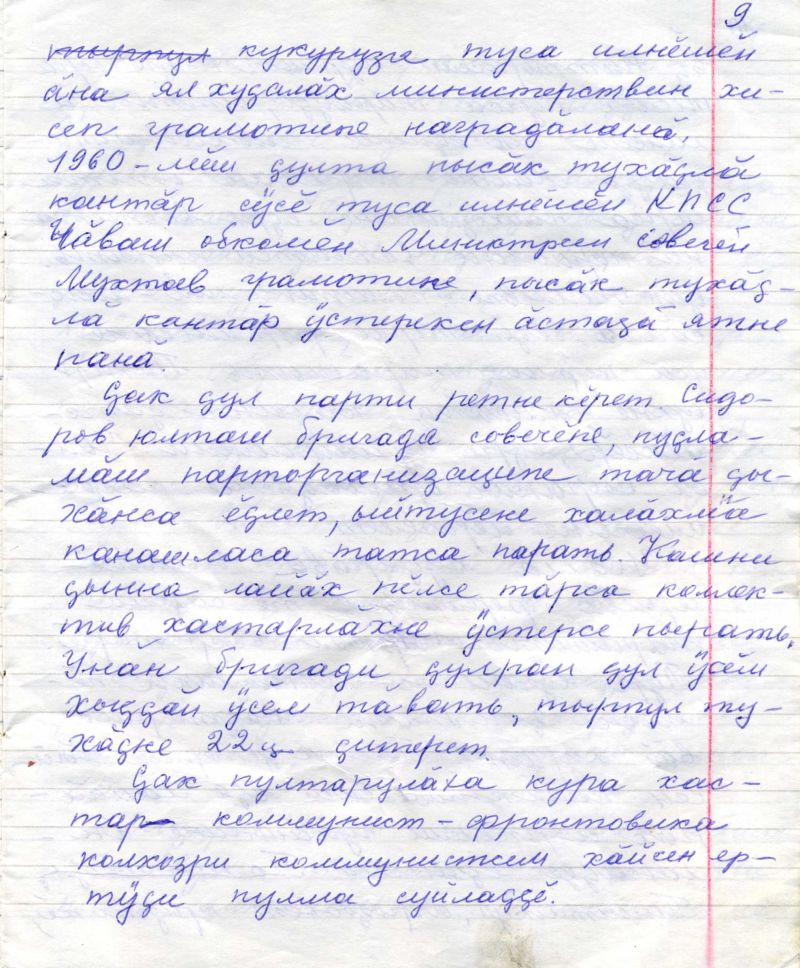 9
тырпул кукурузэ туса илнӗшӗн
ӑна ял худалӑх министерствин хи-
сеп грамотипе наградӑланӑ.
1960-мӗш ҫулта пысӑк тухӑҫлӑ
кантӑр ӳсӗ туса илнӗшӗн КПСС
Чӑваш обкомӗн Министрсен совечӗн
Мухтав грамотине, пысӑк тухӑҫ-
лӑ кантӑр ӳстерекен ӑстаҫӑ ятне
панӑ.
Ҫак ҫул парти ретне кӗрет. Сидо-
ров юлташ бригада совечӗпе, пуҫла-
мӑш парторганизаципе тачӑ ҫы-
хӑнса ӗҫлет, ыйтусене халӑхпа
канашласа татса парать. Кашни
ҫынна лайӑх пӗлсе тӑрса коллек-
тив хастарлӑхне ӳстерсе пырать.
Унӑн бригади ҫулран ҫул ӳсӗм
хыҫҫӑн ӳсӗм тӑвать, тырпул ту-
хӑҫне 22 ц ҫитерет.
Ҫак пултарулӑха кура хас-
тар коммунист-фронтовика
колхозри коммунистсем хӑйсен ер-
тӳҫи пулма суйлаҫҫӗ.